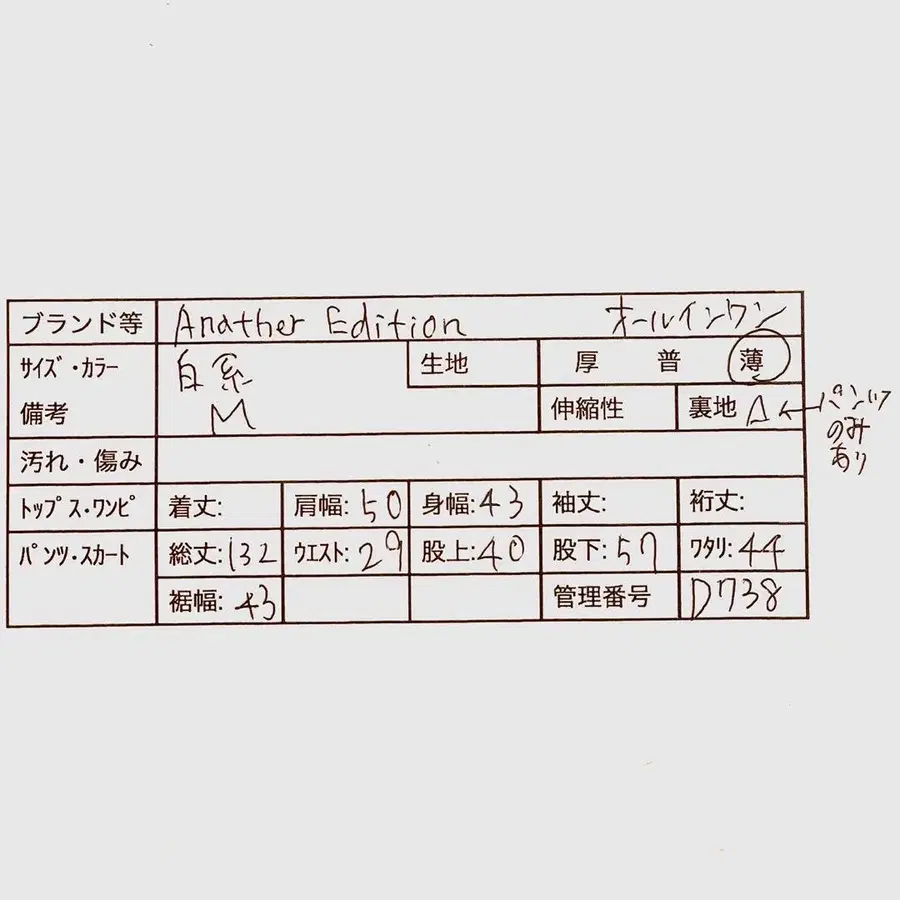 ブランド等 Anather Edition オールインワン
サイズ・カラー 白系 生地 厚 普 薄
備考 M 伸縮性 裏地 △ ← パンツ
のみ
あり
汚れ・傷み
トップス・ワンピ 着丈: 肩幅: 50 身幅: 43 袖丈: 裄丈:
パンツ・スカート 総丈: 132 ウエスト: 29 股上: 40 股下: 57 ワタリ: 44
裾幅: 43 管理番号 D738